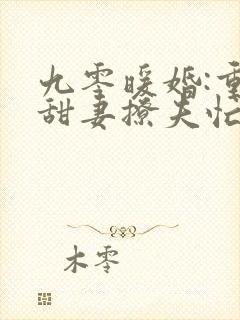 九零暖婚:重
甜妻撩夫忙
木零